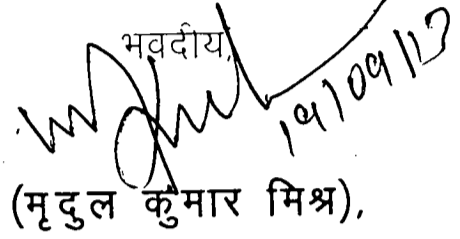 भवदीय,
19/09/13
(मृदुल कुमार मिश्र),